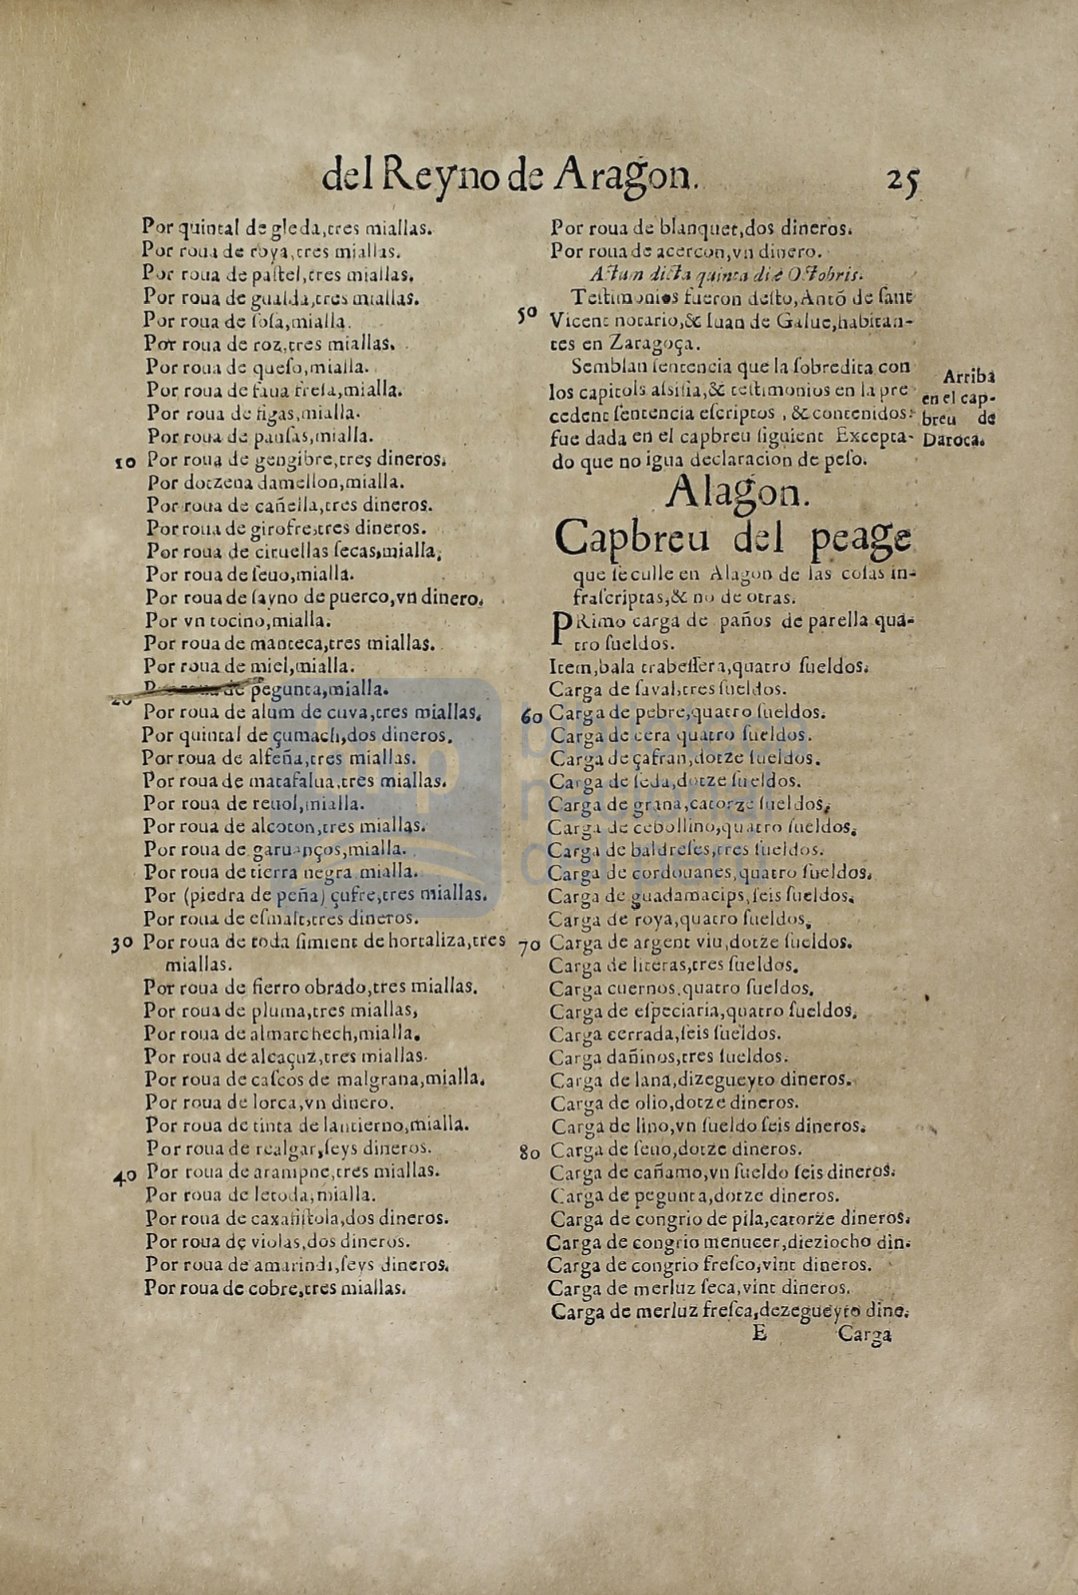 del Reyno de Aragon.
25
Por quintal de gleda,tres miallas.
Por roua de roya,tres miallas.
Por roua de pastel,tres miallas.
Por roua de gualda,tres miallas.
Por roua de sosa,mialla.
Por roua de roz,tres miallas.
Por roua de queso,mialla.
Por roua de faua fresa,mialla.
Por roua de figas,mialla.
Por roua de pansas,mialla.
10 Por roua de gengibre,tres dineros.
Por dotzena damellon,mialla.
Por roua de cañella,tres dineros.
Por roua de girofre,tres dineros.
Por roua de ciruellas secas,mialla.
Por roua de seuo,mialla.
Por roua de sayno de puerco,vn dinero.
Por vn tocino,mialla.
Por roua de manteca,tres miallas.
Por roua de miel,mialla.
de pegunta,mialla.
Por roua de alum de cuva,tres miallas.
Por quintal de çumach,dos dineros.
Por roua de alfeña,tres miallas.
Por roua de matafalua,tres miallas.
Por roua de reuol,mialla.
Por roua de alcoton,tres miallas.
Por roua de garuanços,mialla.
Por roua de tierra negra mialla.
Por (piedra de peña) çufre,tres miallas.
Por roua de esmalt,tres dineros.
30 Por roua de toda simient de hortaliza,tres
miallas.
Por roua de fierro obrado,tres miallas.
Por roua de pluma,tres miallas,
Por roua de almarchech,mialla.
Por roua de alcaçuz,tres miallas.
Por roua de cascos de malgrana,mialla.
Por roua de lorca,vn dinero.
Por roua de tinta de lantierno,mialla.
Por roua de realgar,seys dineros.
40 Por roua de arampne,tres miallas.
Por roua de letoda,mialla.
Por roua de caxafistola,dos dineros.
Por roua de violas,dos dineros.
Por roua de amarindi,seys dineros.
Por roua de cobre,tres miallas.
Por roua de blanquet,dos dineros.
Por roua de acercon,vn dinero.
Actun dicta quinta die Octobris.
Testimonios fueron desto,Antõ de sant
50 Vicent notario,& Iuan de Galue,habitan-
tes en Zaragoça.
Semblan sentencia que la sobredita con
los capitols alsisia,& testimonios en la pre
cedent sentencia escriptos , & contenidos:
fue dada en el capbreu siguient Excepta-
do que no igua declaracion de peso.
Arriba
en el cap-
breu de
Daroca.
Alagon.
Capbreu del peage
que se culle en Alagon de las cosas in-
frascriptas,& no de otras.
PRimo carga de paños de parella qua-
tro sueldos.
Item,bala trabessera,quatro sueldos.
Carga de saval,tres sueldos.
60 Carga de pebre,quatro sueldos.
Carga de cera quatro sueldos.
Carga de çafran,dotze sueldos.
Carga de seda,dotze sueldos.
Carga de grana,catorze sueldos.
Carga de cebollino,quatro sueldos.
Carga de baldreses,tres sueldos.
Carga de cordouanes,quatro sueldos.
Carga de guadamacips,seis sueldos.
Carga de roya,quatro sueldos.
70 Carga de argent viu,dotze sueldos.
Carga de literas,tres sueldos.
Carga cuernos,quatro sueldos.
Carga de especiaria,quatro sueldos.
Carga cerrada,seis sueldos.
Carga dañinos,tres sueldos.
Carga de lana,dizegueyto dineros.
Carga de olio,dotze dineros.
Carga de lino,vn sueldo seis dineros.
80 Carga de seuo,dotze dineros.
Carga de cañamo,vn sueldo seis dineros.
Carga de pegunta,dotze dineros.
Carga de congrio de pila,catorze dineros.
Carga de congrio menucer,dieziocho din.
Carga de congrio fresco,vint dineros.
Carga de merluz seca,vint dineros.
Carga de merluz fresca,dezegueyto dine.
E Carga